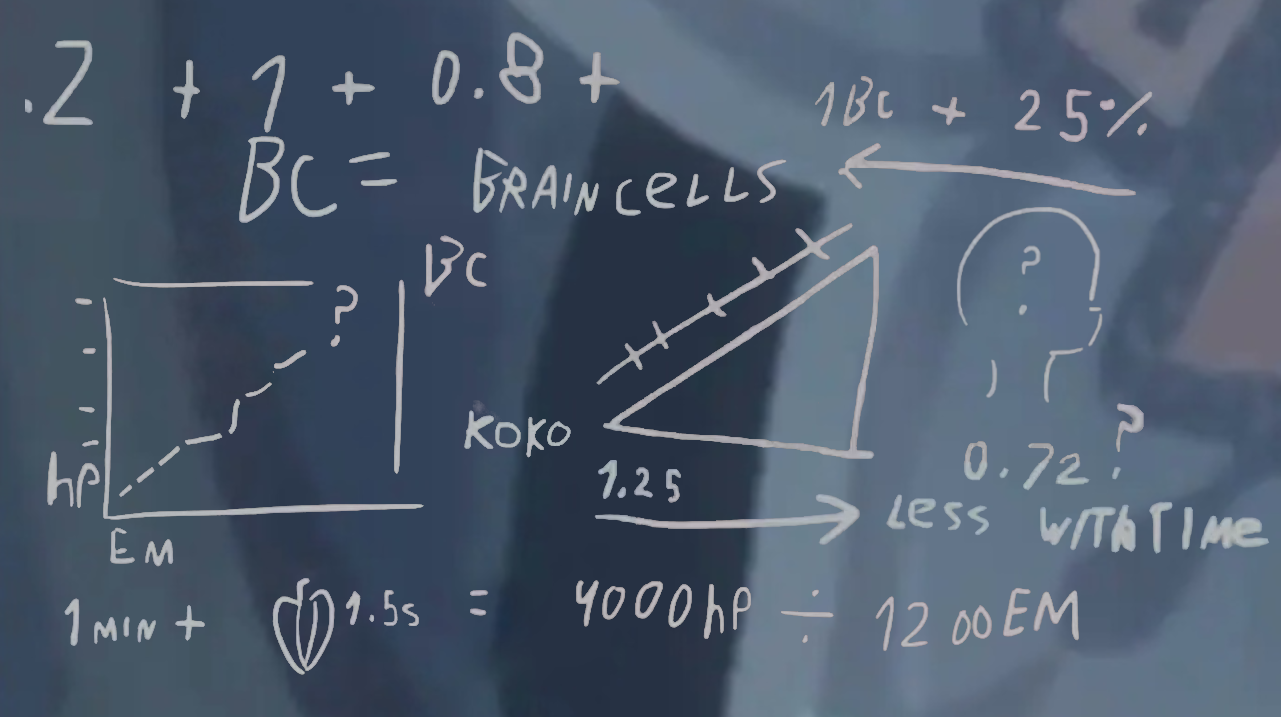 .2 + 1 + 0.8 +
1BC + 25%
BC = BRAINCELLS
BC
?
?
hP
EM
KOKO
1.25
0.72?
LESS WITH TIME
1 MIN + 1.5s = 4000hP ÷ 1200EM